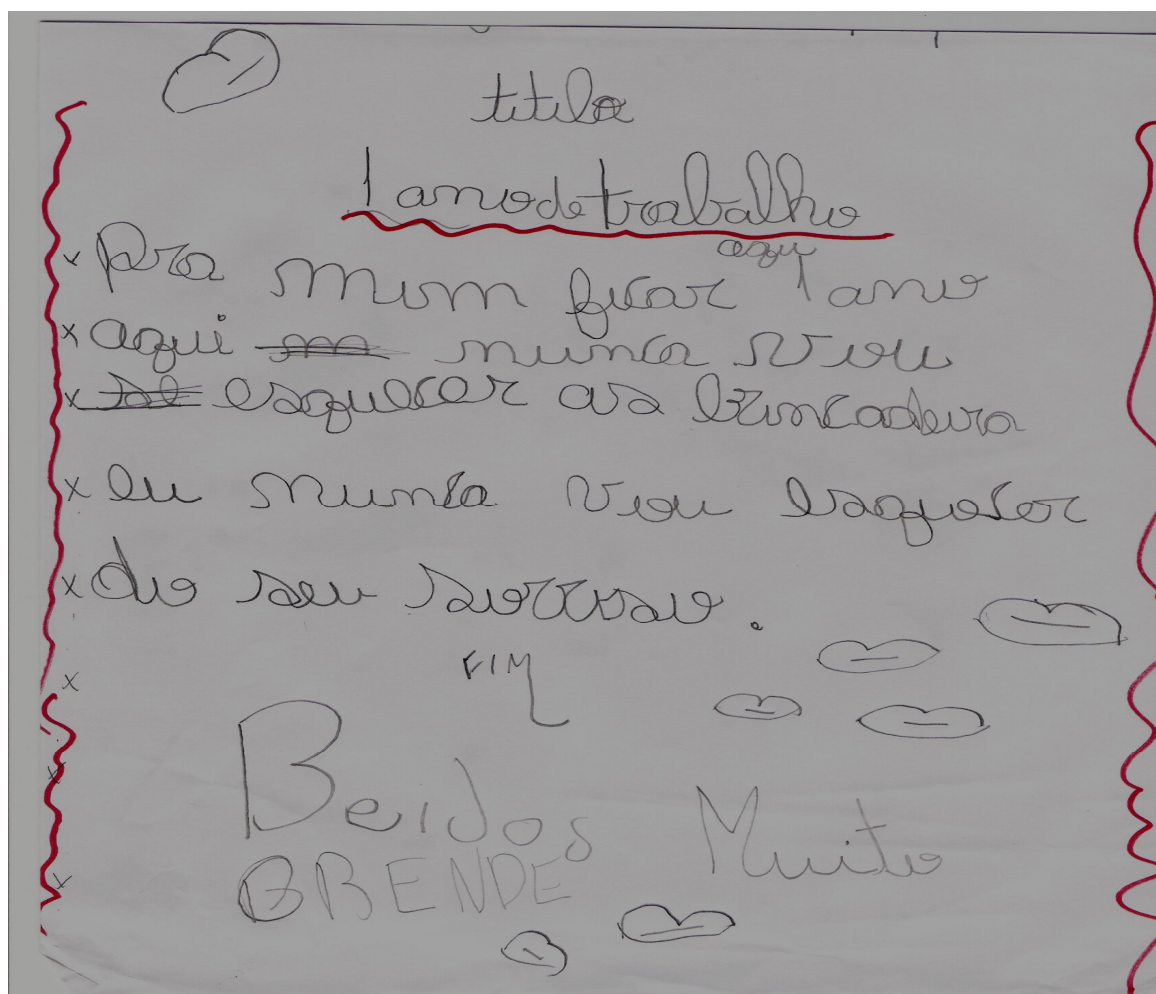 titilo
1 ano de trabalho
aqui
x Pra mim ficar 1 ano
x aqui nunca vou
x esquecer as brincadeira
x eu nunca vou esquecer
x do seu sorriso.
x
FIM
x
Beijos Muito
x GRENDE